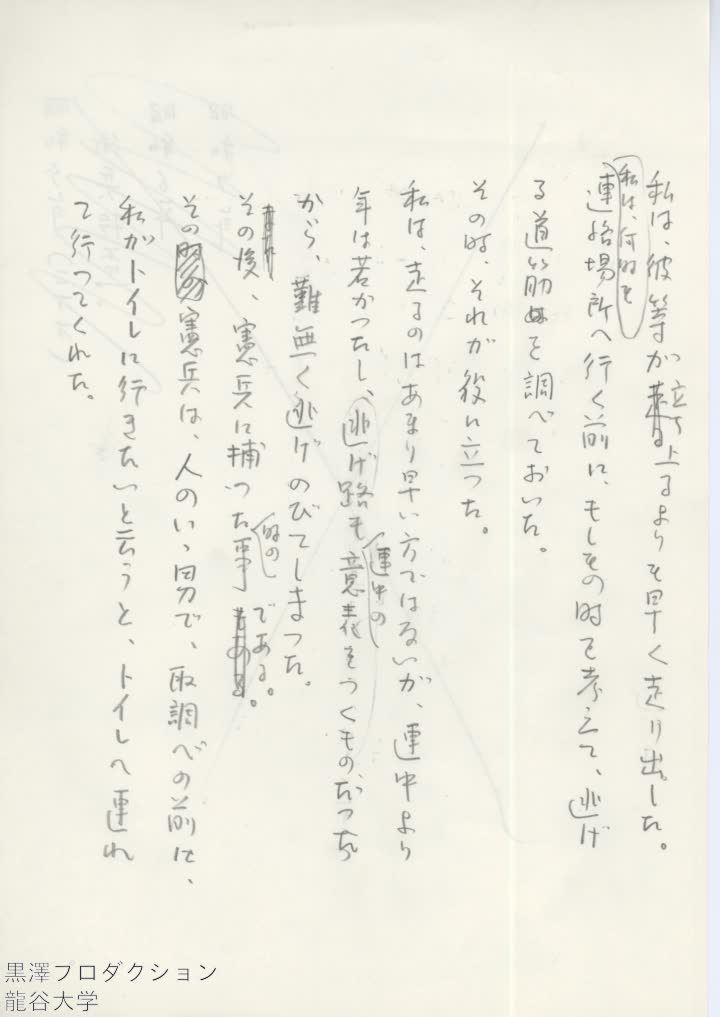 私は、彼等が立ち上るよりも早く走り出した。
私は、何時も
連絡場所へ行く前に、もしその時を考えて、逃げ
る道筋を調べておいた。
その時、それが役に立つた。
私は、走るのはあまり早い方ではないが、連中より
年は若かつたし、逃げ路も連中の意表をつくものだつた
から、難無く逃げのびてしまつた。
その後、憲兵に捕つた事がある。
その憲兵は、人のいゝ男で、取調べの前に、
私がトイレに行きたいと云うと、トイレへ連れ
て行つてくれた。
黒澤プロダクション
龍谷大学